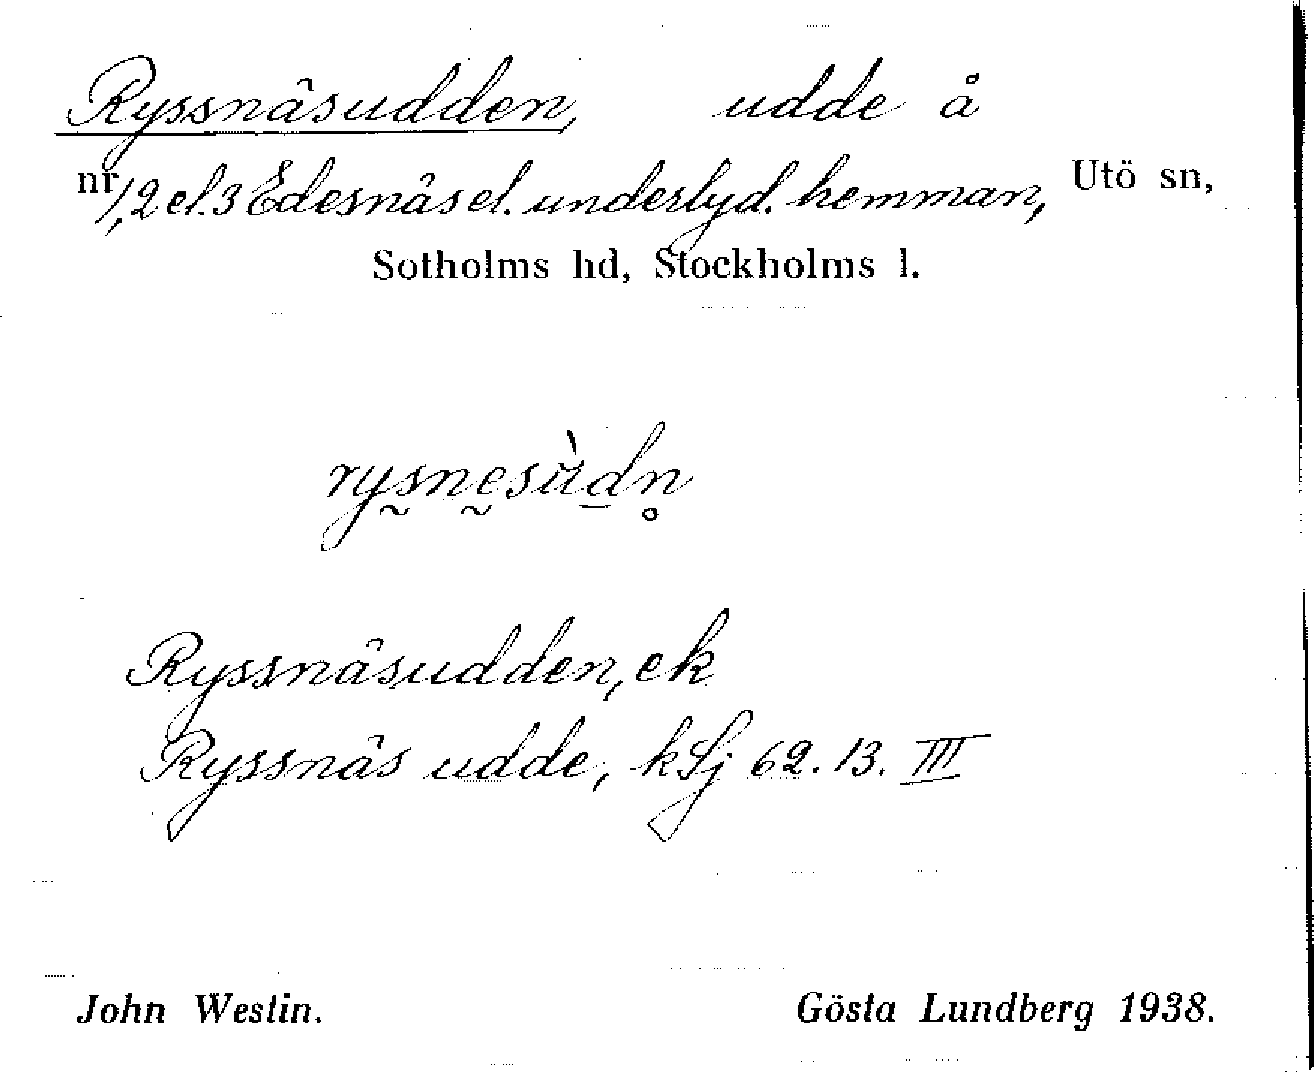 Ryssnäsudden, udde å
nr 1, 2 el. 3 Edesnäs el. underlyd. hemman, Utö sn,
Sotholms hd, Stockholms l.
rysnesùdn̥
Ryssnäsudden, ek
Ryssnäs udde, kSj 62. 13. III
John Westin. Gösta Lundberg 1938.